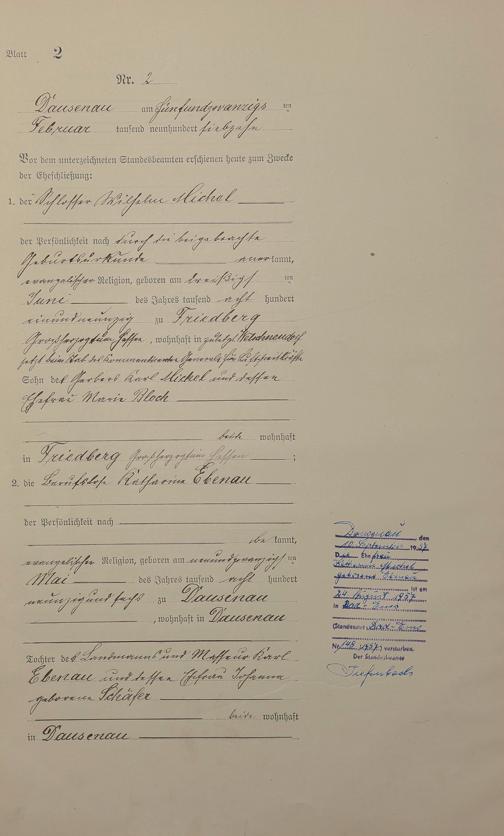 Blatt 2
Nr. 2
Dausenau am fünfundzwanzigs ten
Februar tausend neunhundert siebzehn
Vor dem unterzeichneten Standesbeamten erschienen heute zum Zwecke
der Eheschließung:
1. der Schlosser Wilhelm Michel
der Persönlichkeit nach durch die beigebrachte
Geburtsurkunde anerkannt,
evangelischer Religion, geboren am dreißigs ten
Juni des Jahres tausend acht hundert
einundneunzig zu Friedberg
Großherzogtum Hessen, wohnhaft in
jetzt beim Stab des Kommandierenden Generals der Luftstreitkräfte
Sohn des Gerbers Karl Michel und dessen
Ehefrau Marie Bloch
beide wohnhaft
in Friedberg Großherzogtum Hessen ;
2. die Berufslose Katharina Ebenau
der Persönlichkeit nach
be kannt,
evangelischer Religion, geboren am neunundzwanzigs ten
Mai des Jahres tausend acht hundert
neunzigundsechs zu Dausenau
, wohnhaft in Dausenau
Tochter des Landmanns und Masseur Karl
Ebenau und dessen Ehefrau Johanna
geborene Schäfer
beide wohnhaft
in Dausenau
Dausenau den
10. September 1957
Die Ehefrau
Katharina Michel
geborene Ebenau
ist am
24. August 1957
in Bad-Ems
(Standesamt Bad-Ems
Nr. 148/1957) verstorben.
Der Standesbeamte